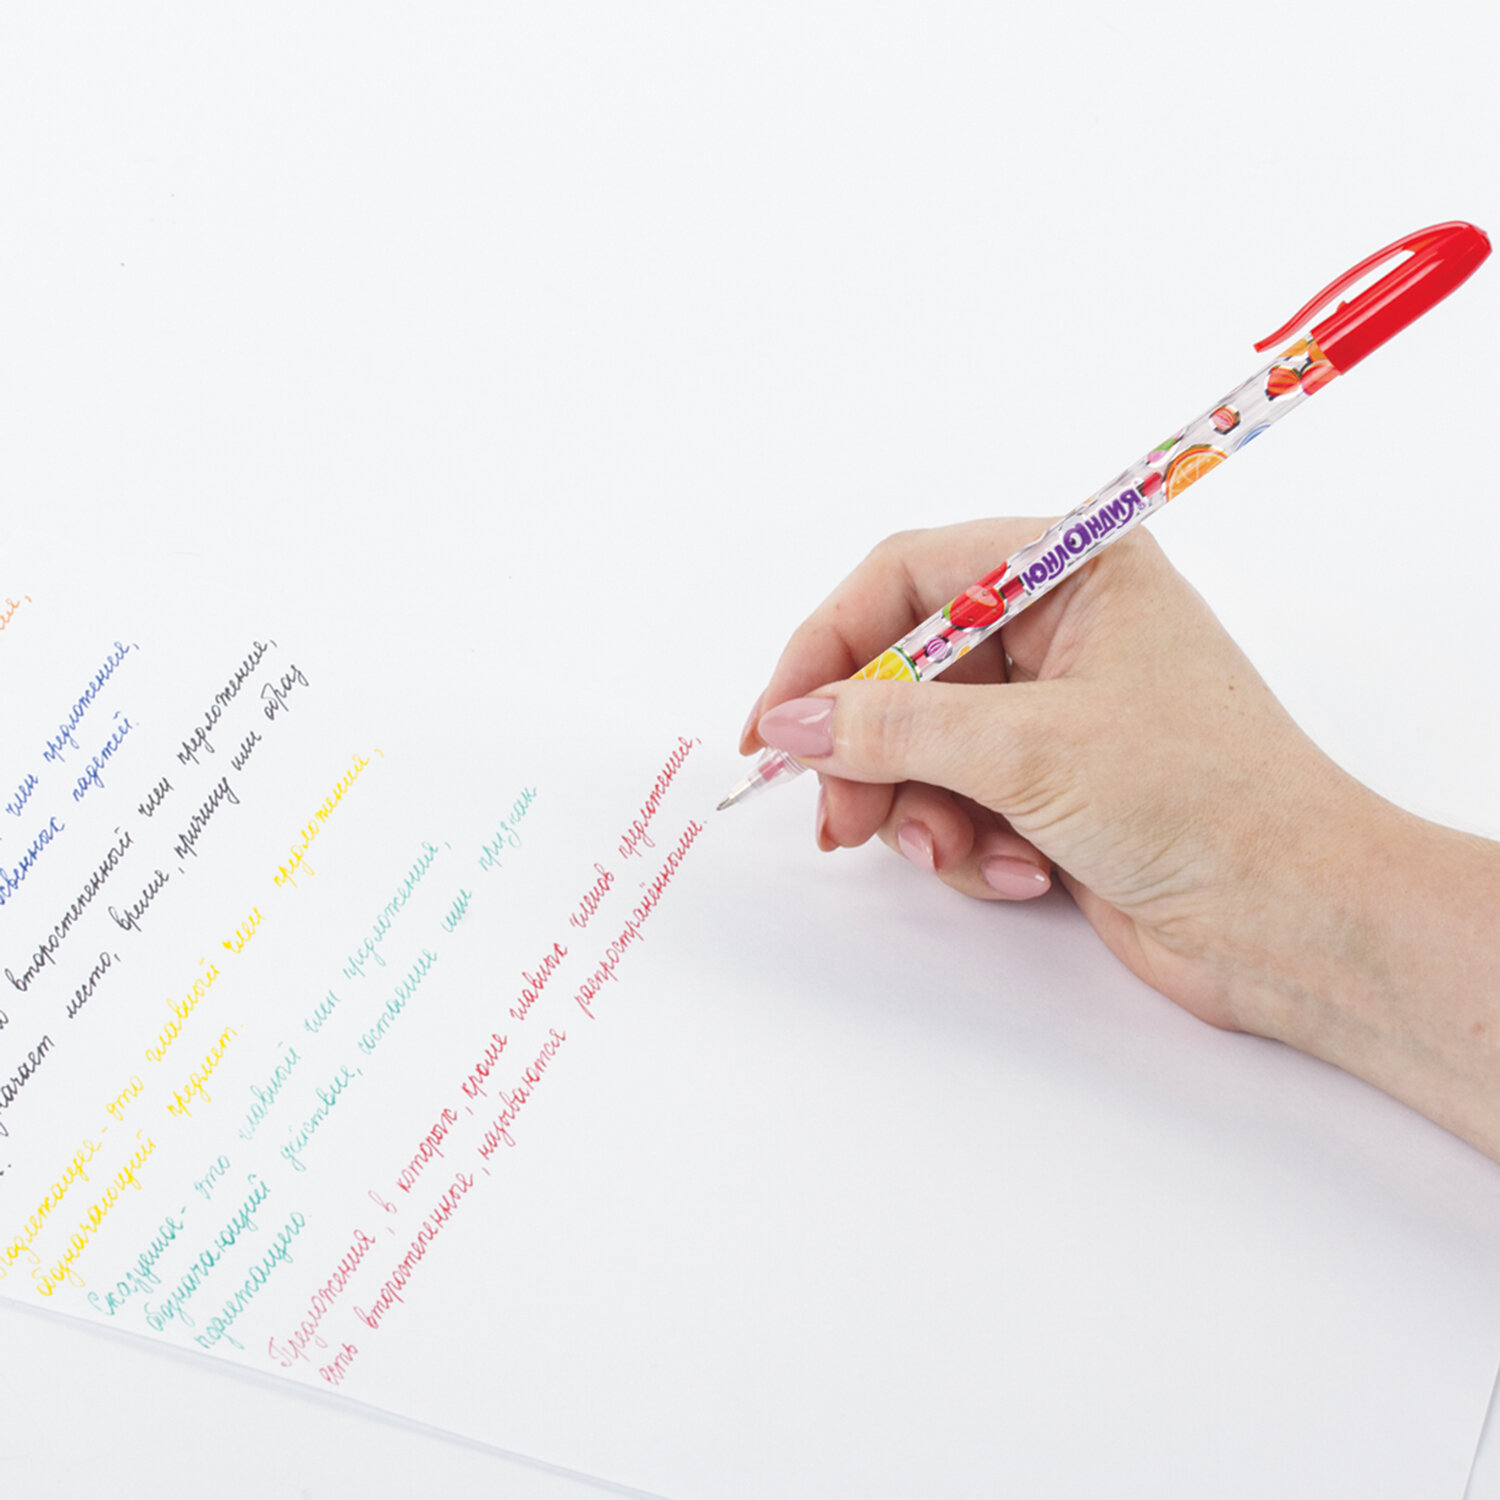 член предложения,
падежей.
второстепенный член предложения,
обозначает место, время, причину или образ
Подлежащее - это главный член предложения,
обозначающий предмет.
Сказуемое - это главный член предложения,
обозначающий действие, состояние или признак
подлежащего.
Предложения, в которых, кроме главных членов предложения,
есть второстепенные, называются распространёнными.
ЮНЛАНДИЯ